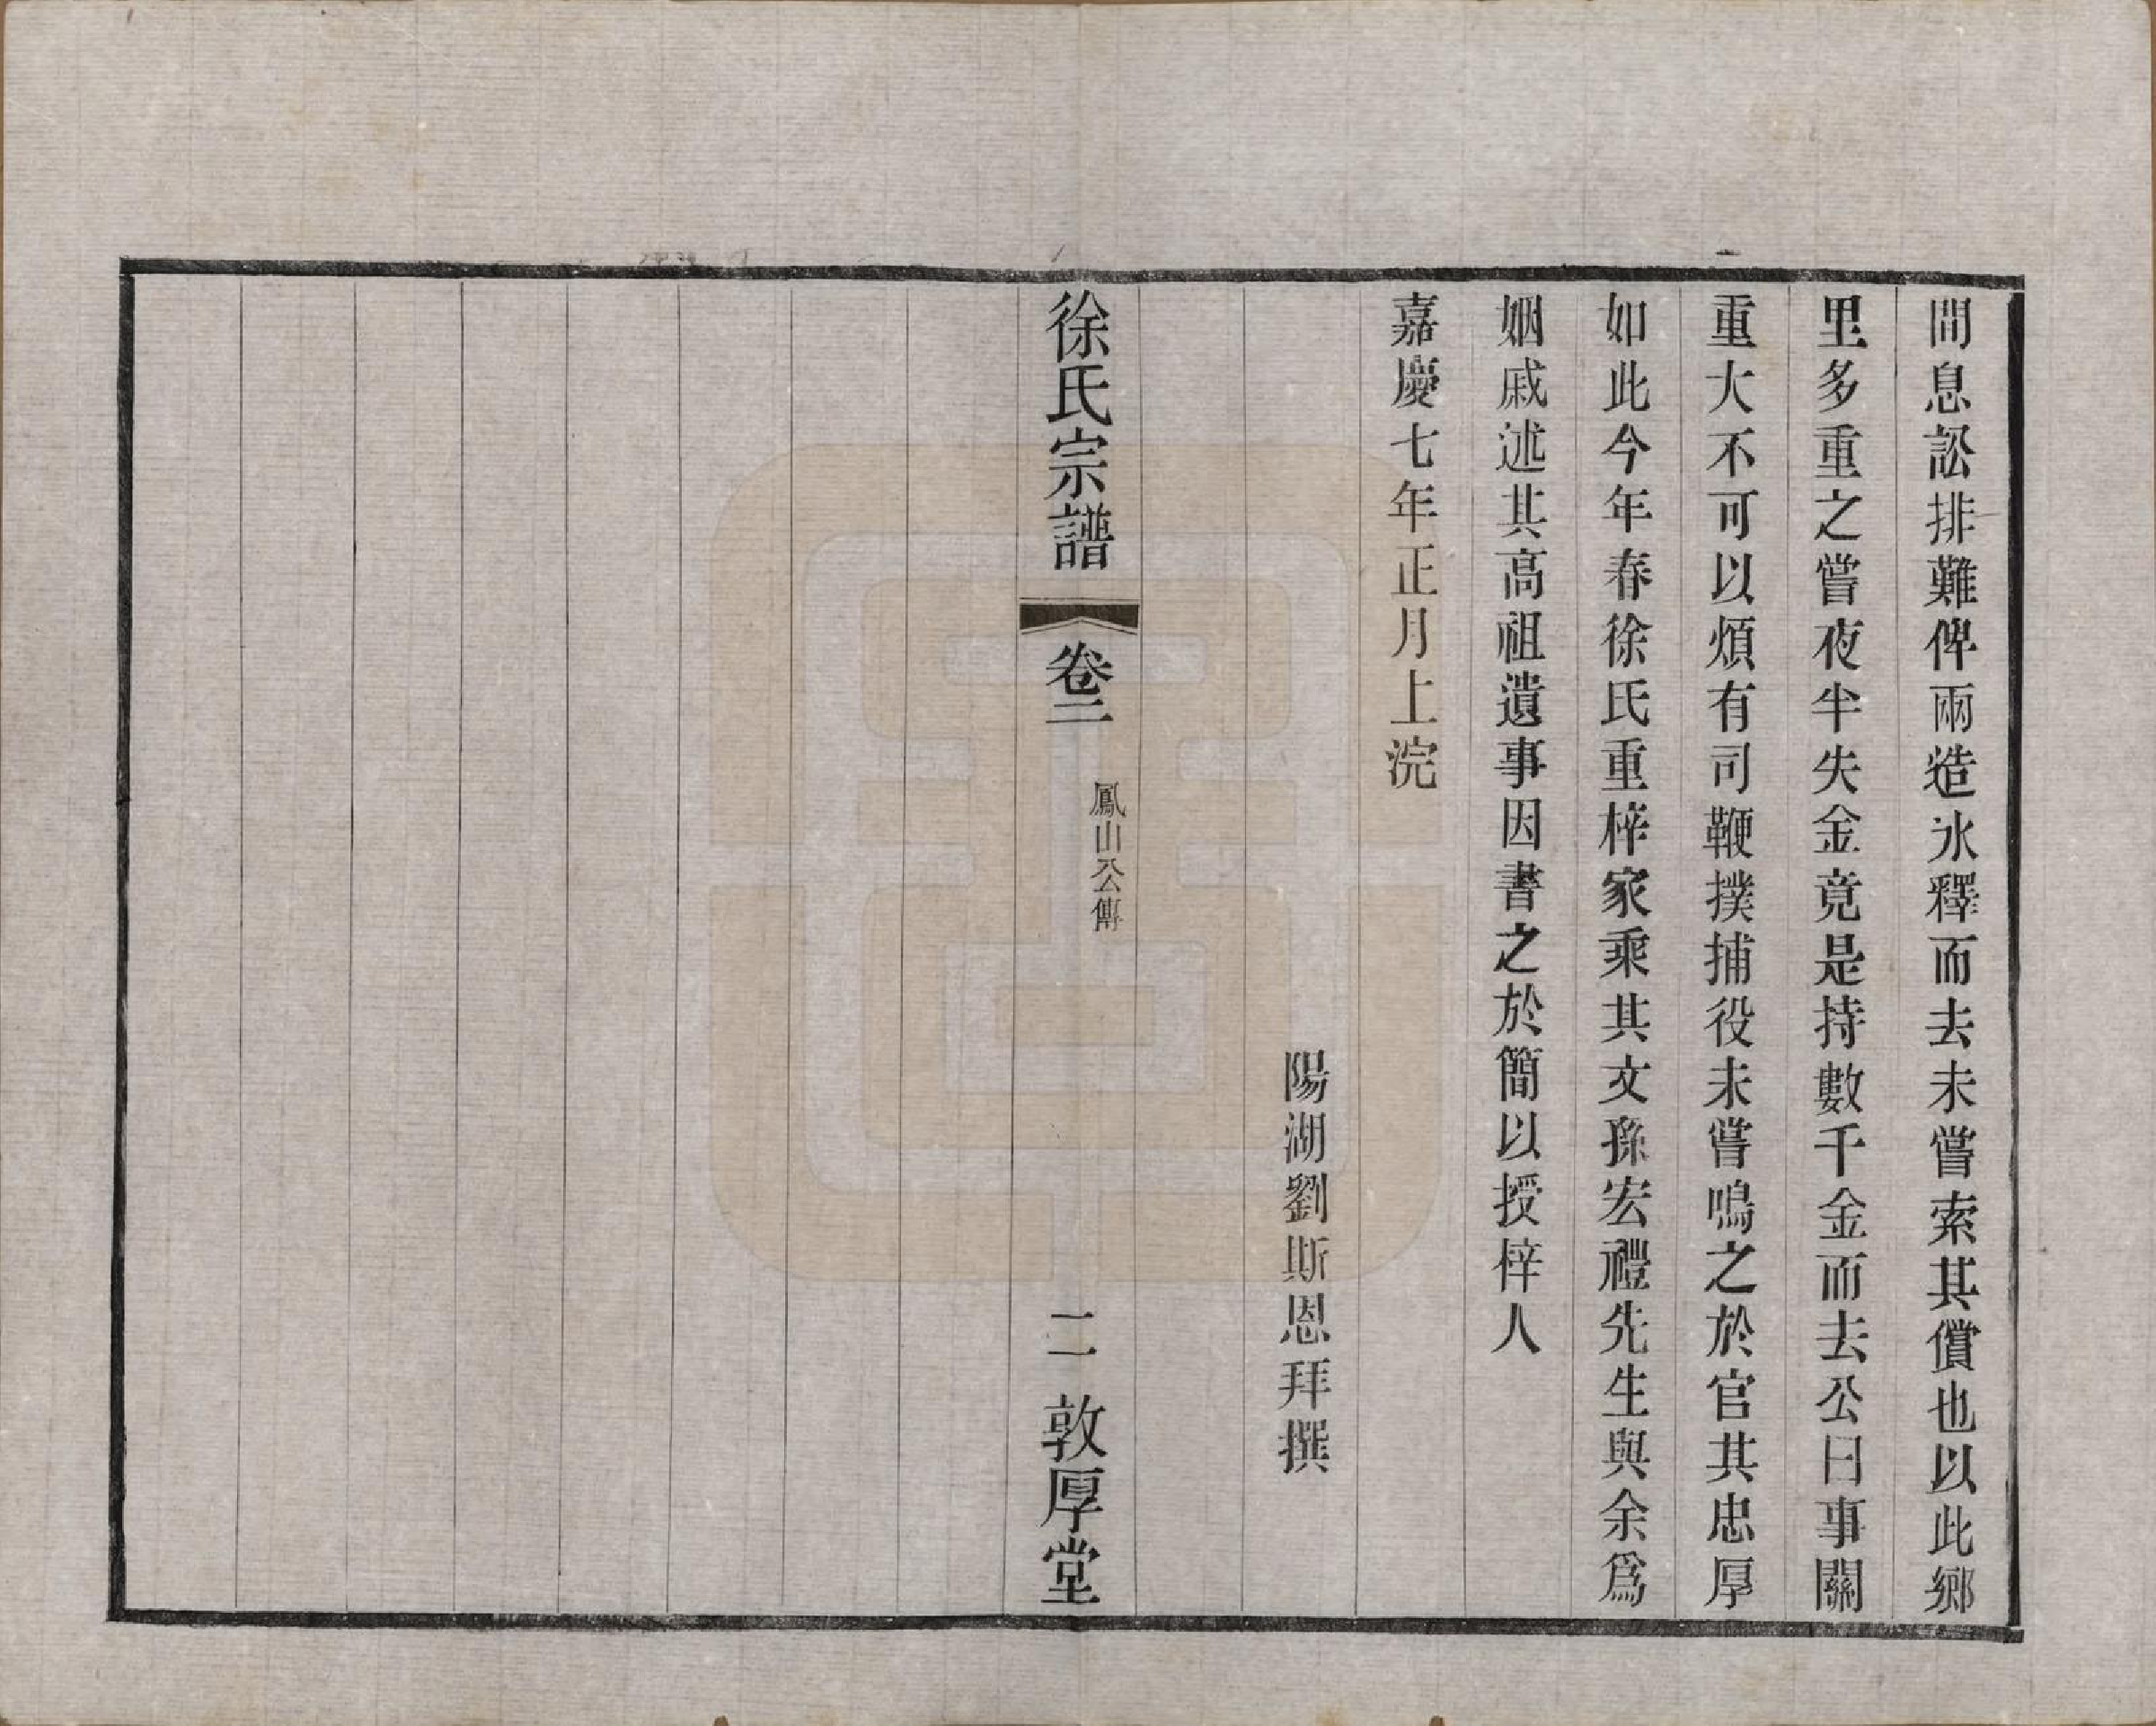 間息訟排難俾兩造氷釋而去未嘗索其償也以此鄉
里多重之嘗夜半失金竟是持數千金而去公曰事關
重大不可以煩有司鞭撲捕役未嘗鳴之於官其忠厚
如此今年春徐氏重梓家乘其文孫宏禮先生與余爲
姻戚述其高祖遺事因書之於簡以授梓人
嘉慶七年正月上浣
陽湖劉斯恩拜撰
徐氏宗譜
卷二
鳳山公傳
二
敦厚堂